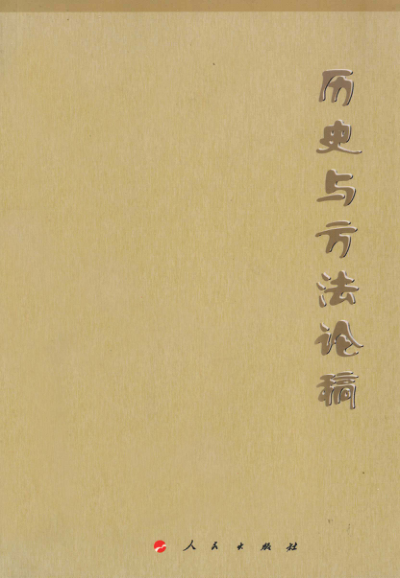 历史与方法论稿
人民出版社